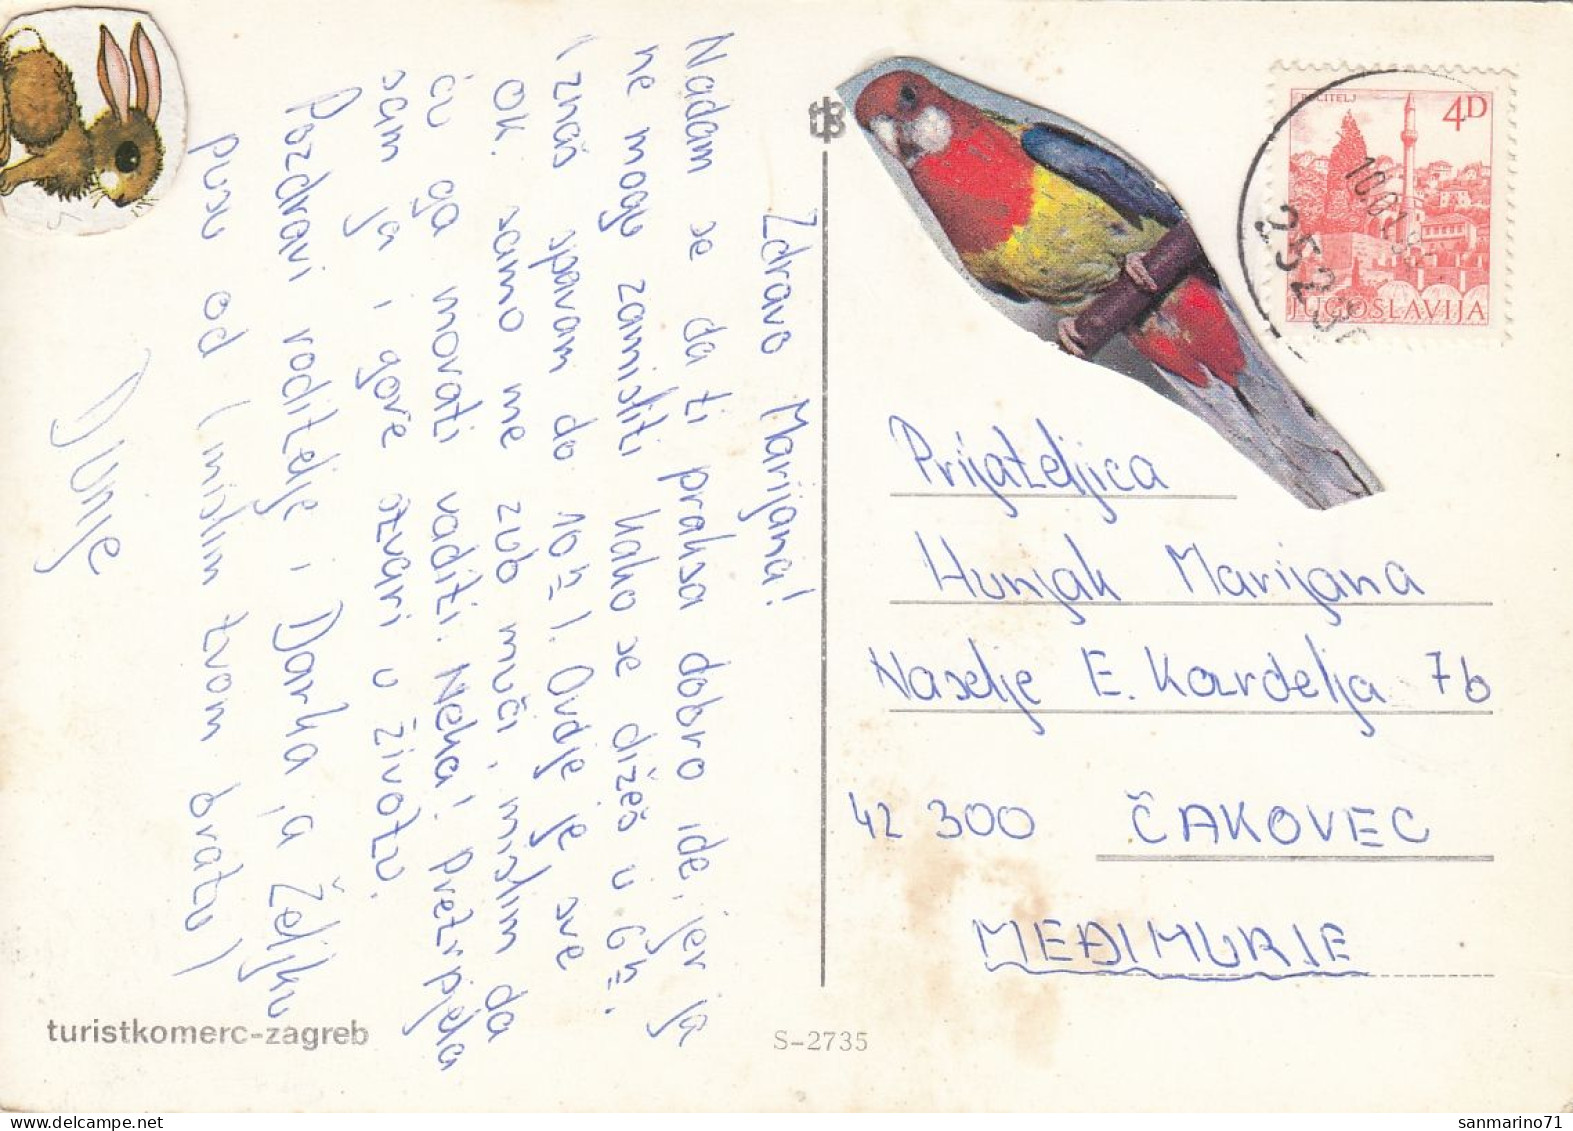 Zdravo Marijana!
Nadam se da ti praksa dobro ide, jer ja
ne mogu zamisliti kako se dižeš u 6h.
(znaš spavam do 10h). Ovdje je sve
OK. samo me zub muči, mislim da
ću ga morati vaditi. Neka, pretrpjela
sam ja i gore stvari u životu.
Pozdravi roditelje i Darka ja Željku
pusu od (mislim tvom bratu)
Dunje
turistkomerc-zagreb
S-2735
POČITELJ
4D
JUGOSLAVIJA
Prijateljica
Hunjak Marijana
Naselje E. Kardelja 7b
42 300 ČAKOVEC
MEĐIMURJE
sanmarino71